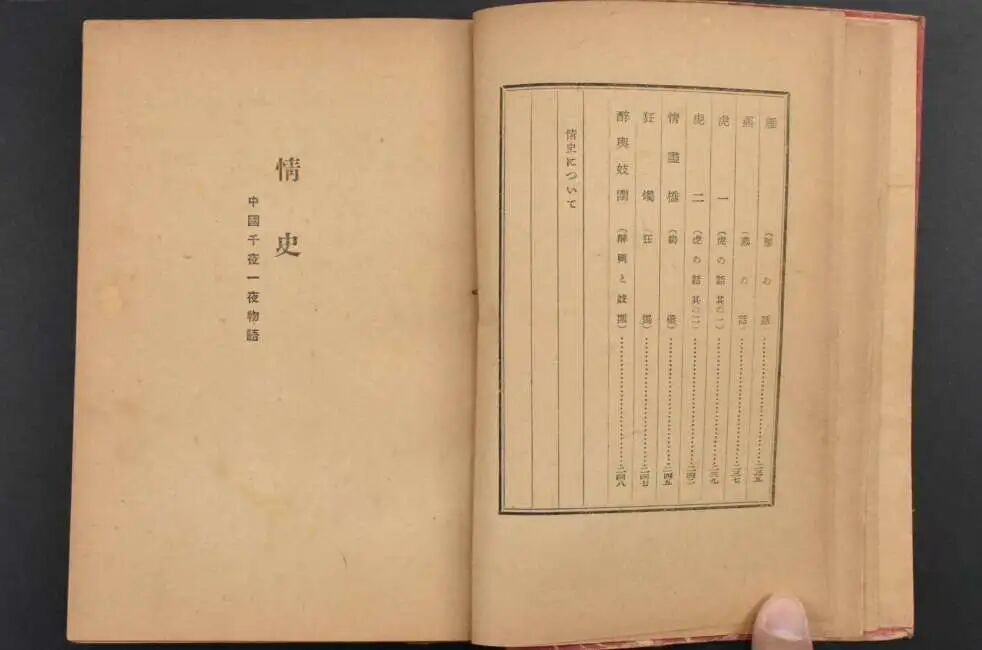 雁 (雁の話)……二三五
燕 (燕の話)……二三七
虎 一 (虎の話其の一)……二三九
虎 二 (虎の話其の二)……二四
情盡橋……二四五
狂……二四七
醉輿妓圍 (醉輿と妓圍)……二四八
情史について
情史
中國千夜一夜物語